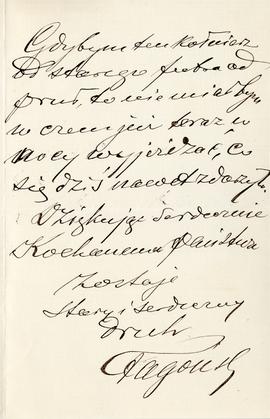 Gdybym ten kołnierz
od starego futra od
pruł, to nie miałbym
w czem już teraz w
nocy wyjeżdżać, co
się dziś nawet zdarzyło.
Dziękując serdecznie
Kochanemu Państwu
zostaję
stary i serdeczny
druh